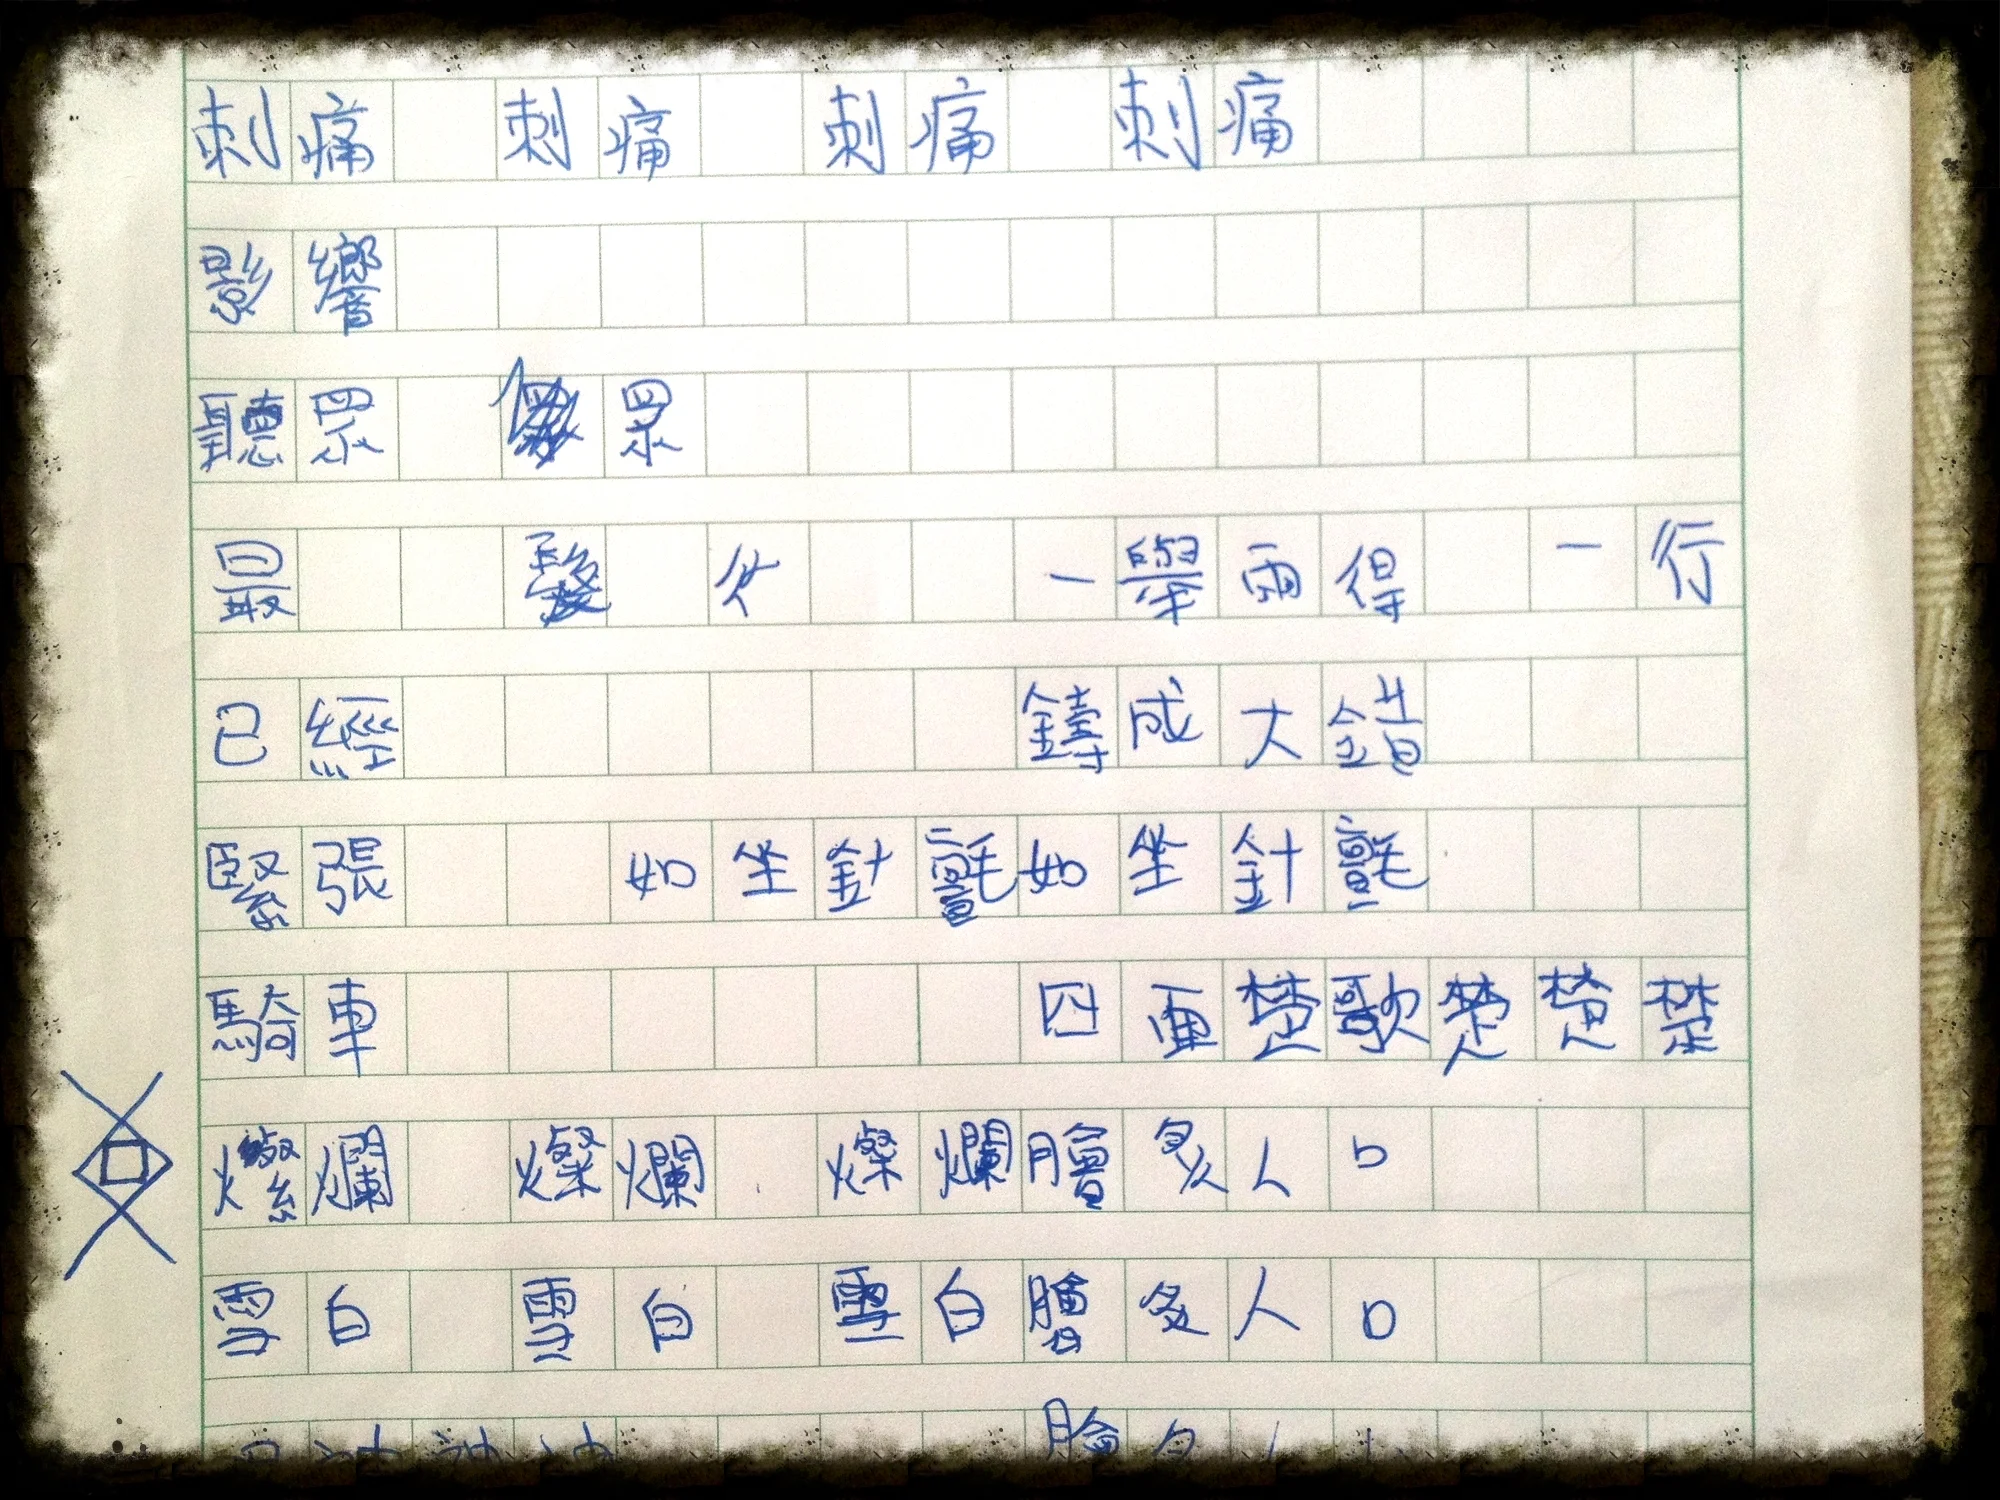 刺痛 刺痛 刺痛 刺痛
影響
聽眾 眾
最 一舉而得 一行
已經 鑄成大錯
緊張 如坐針氈如坐針氈
騎車 四面楚歌楚楚楚
燦爛 燦爛 燦爛膾炙人口
雪白 雪白 雪白膾炙人口